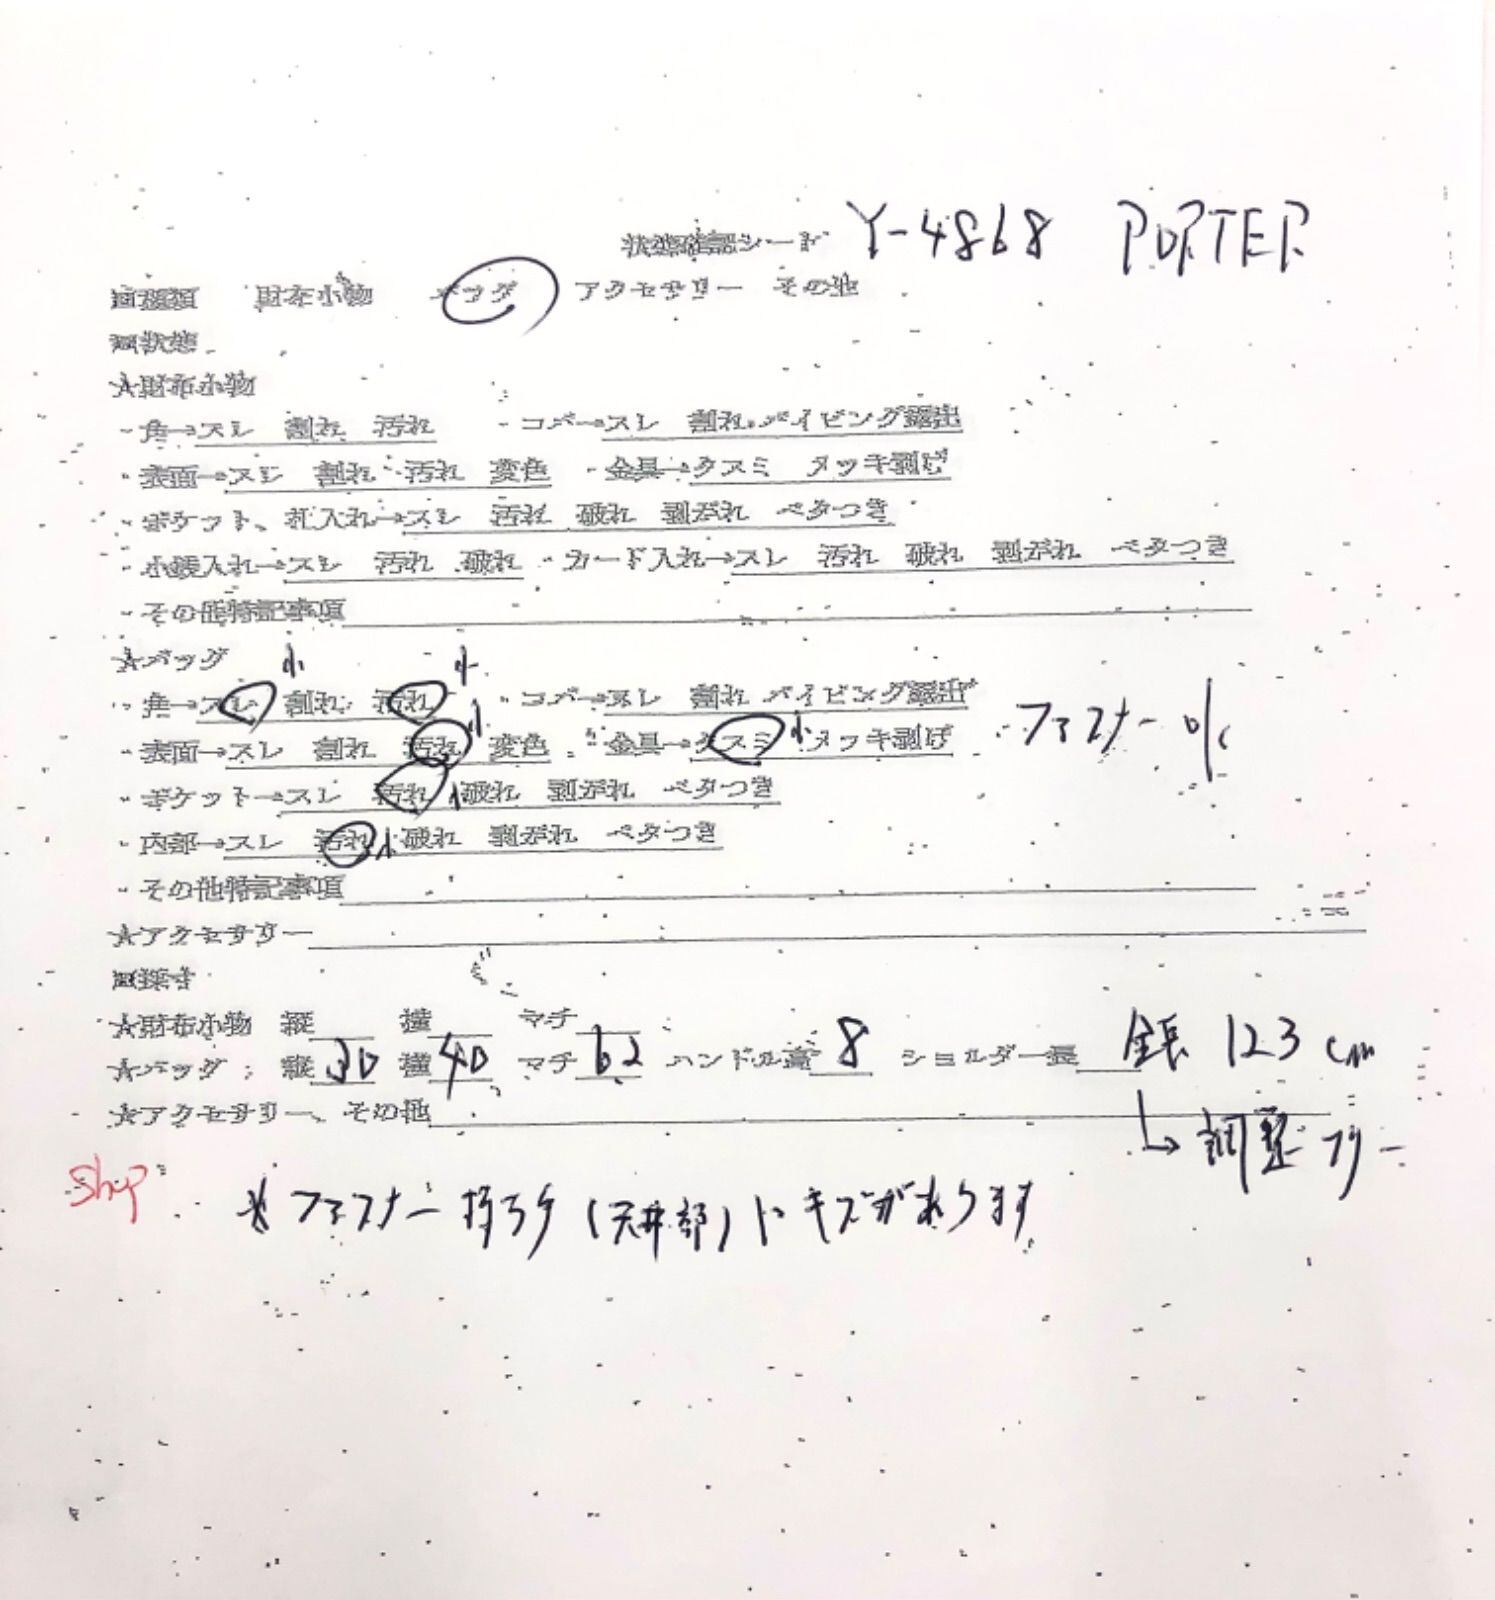 状態確認シート Y-4868 PORTER
□種類 財布小物 バッグ アクセサリー その他
□状態
★財布小物
・角→スレ 割れ 汚れ ・コバ→スレ 割れ パイピング露出
・表面→スレ 割れ 汚れ 変色 ・金具→クスミ メッキ剥げ
・ポケット、札入れ→スレ 汚れ 破れ 剥がれ ベタつき
・小銭入れ→スレ 汚れ 破れ ・カード入れ→スレ 汚れ 破れ 剥がれ ベタつき
・その他特記事項
★バッグ 小 小
・角→スレ 割れ 汚れ ・コバ→スレ 割れ パイピング露出
・表面→スレ 割れ 汚れ 小 変色 ・金具→クスミ 小 メッキ剥げ ファスナー
・ポケット→スレ 汚れ 小 破れ 剥がれ ベタつき
・内部→スレ 汚れ 小 破れ 剥がれ ベタつき
・その他特記事項
★アクセサリー
□採寸
★財布小物 縦 横 マチ
★バッグ 縦 30 横 40 マチ 62 ハンドル高 8 ショルダー長 全長 123 cm
★アクセサリー、その他
↳ 調整フリー
Shop ※ファスナー持ち手(天井部)にキズがあります